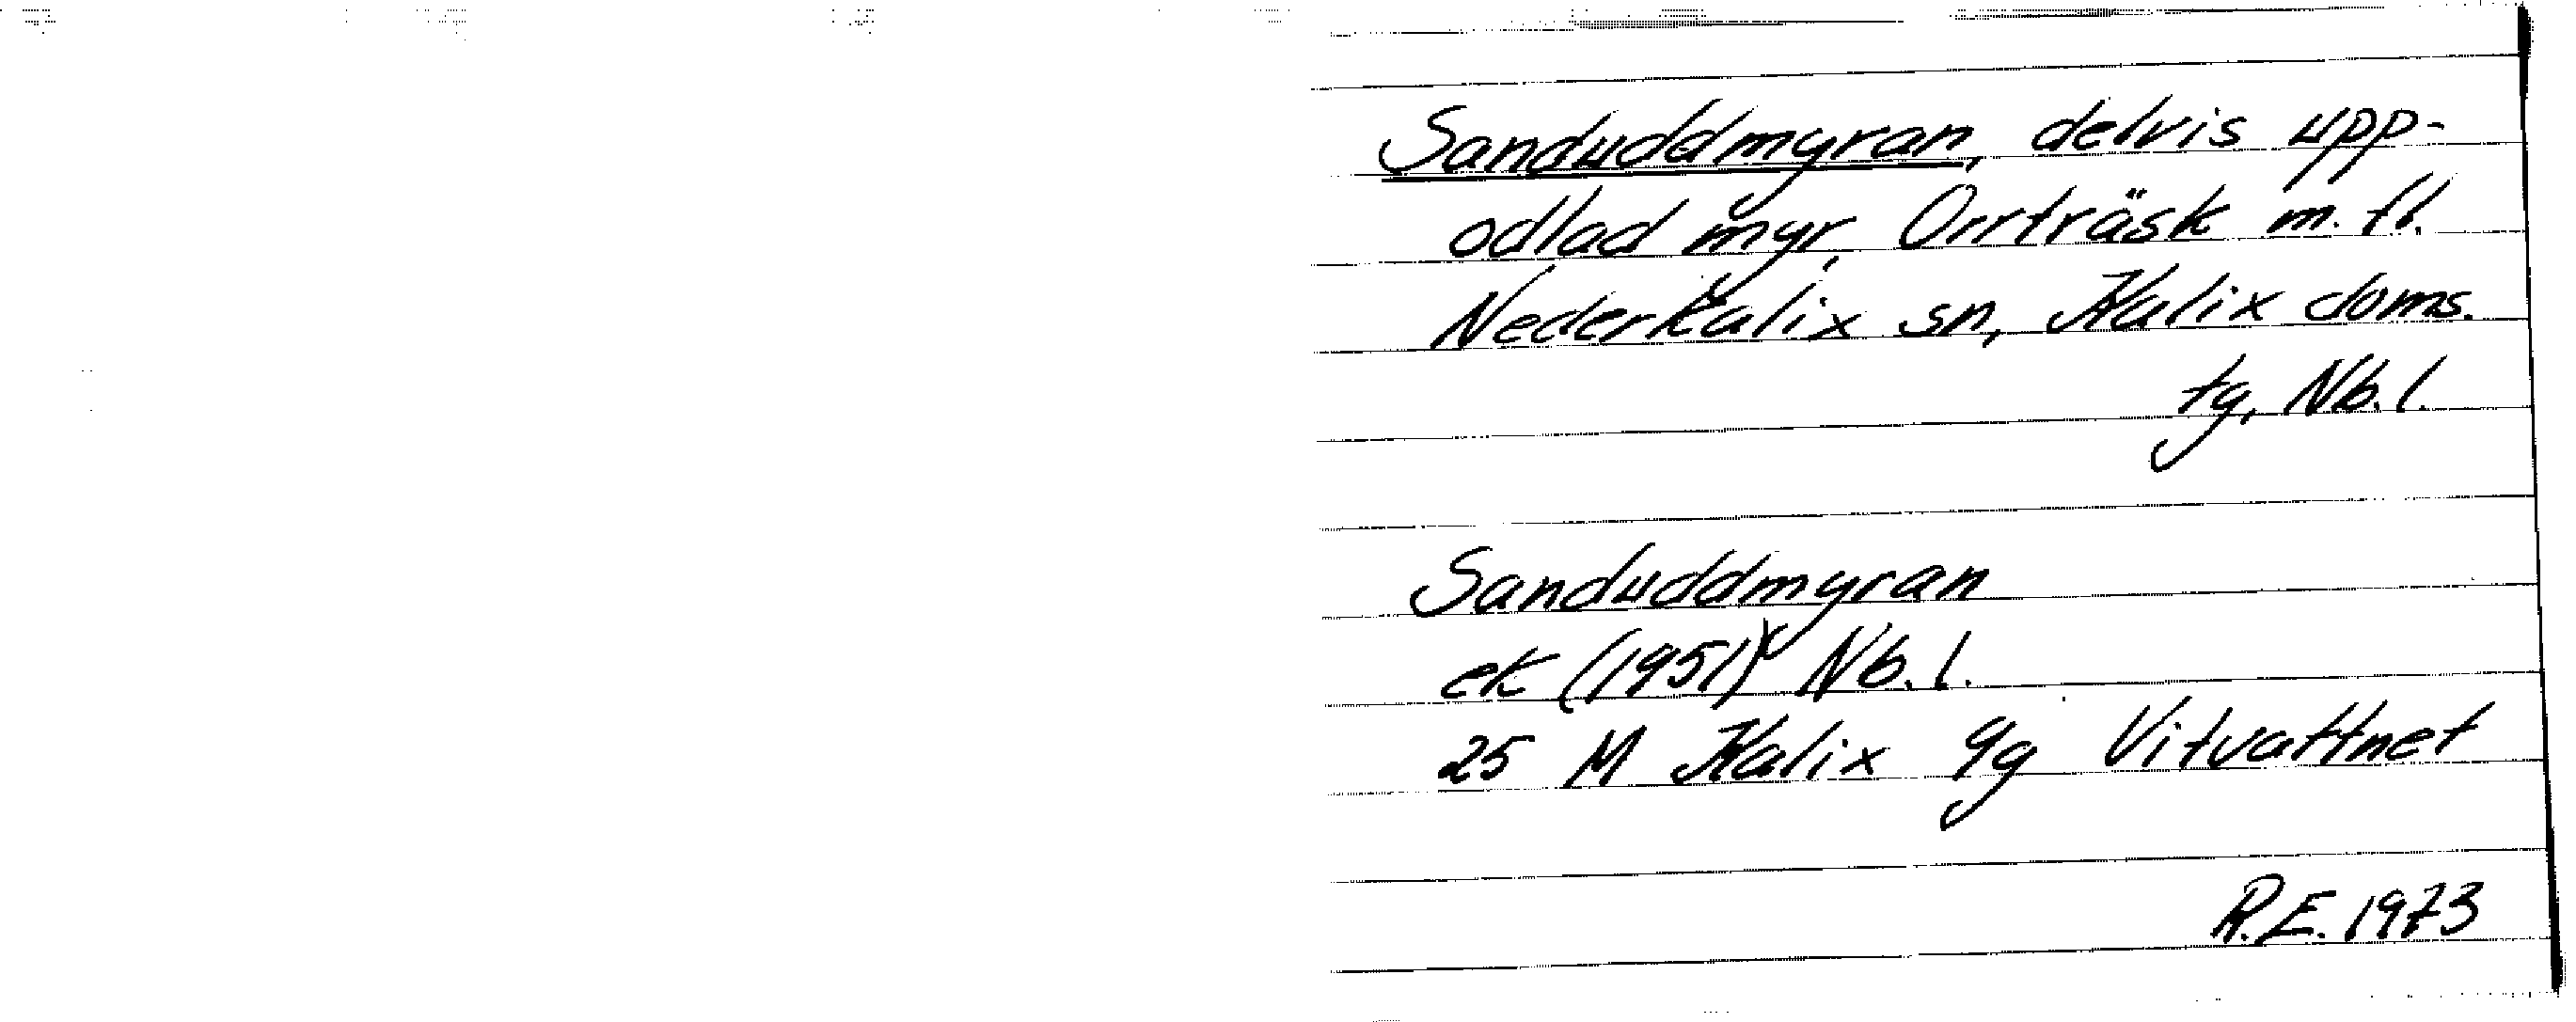 Sanduddmyran, delvis upp-
odlad myr, Orrträsk m.fl.
Nederkalix sn, Kalix doms.
tg, Nb.l.
Sanduddmyran
ek (1951) Nb.l.
25 M Kalix 9g Vitvattnet
R.E. 1973